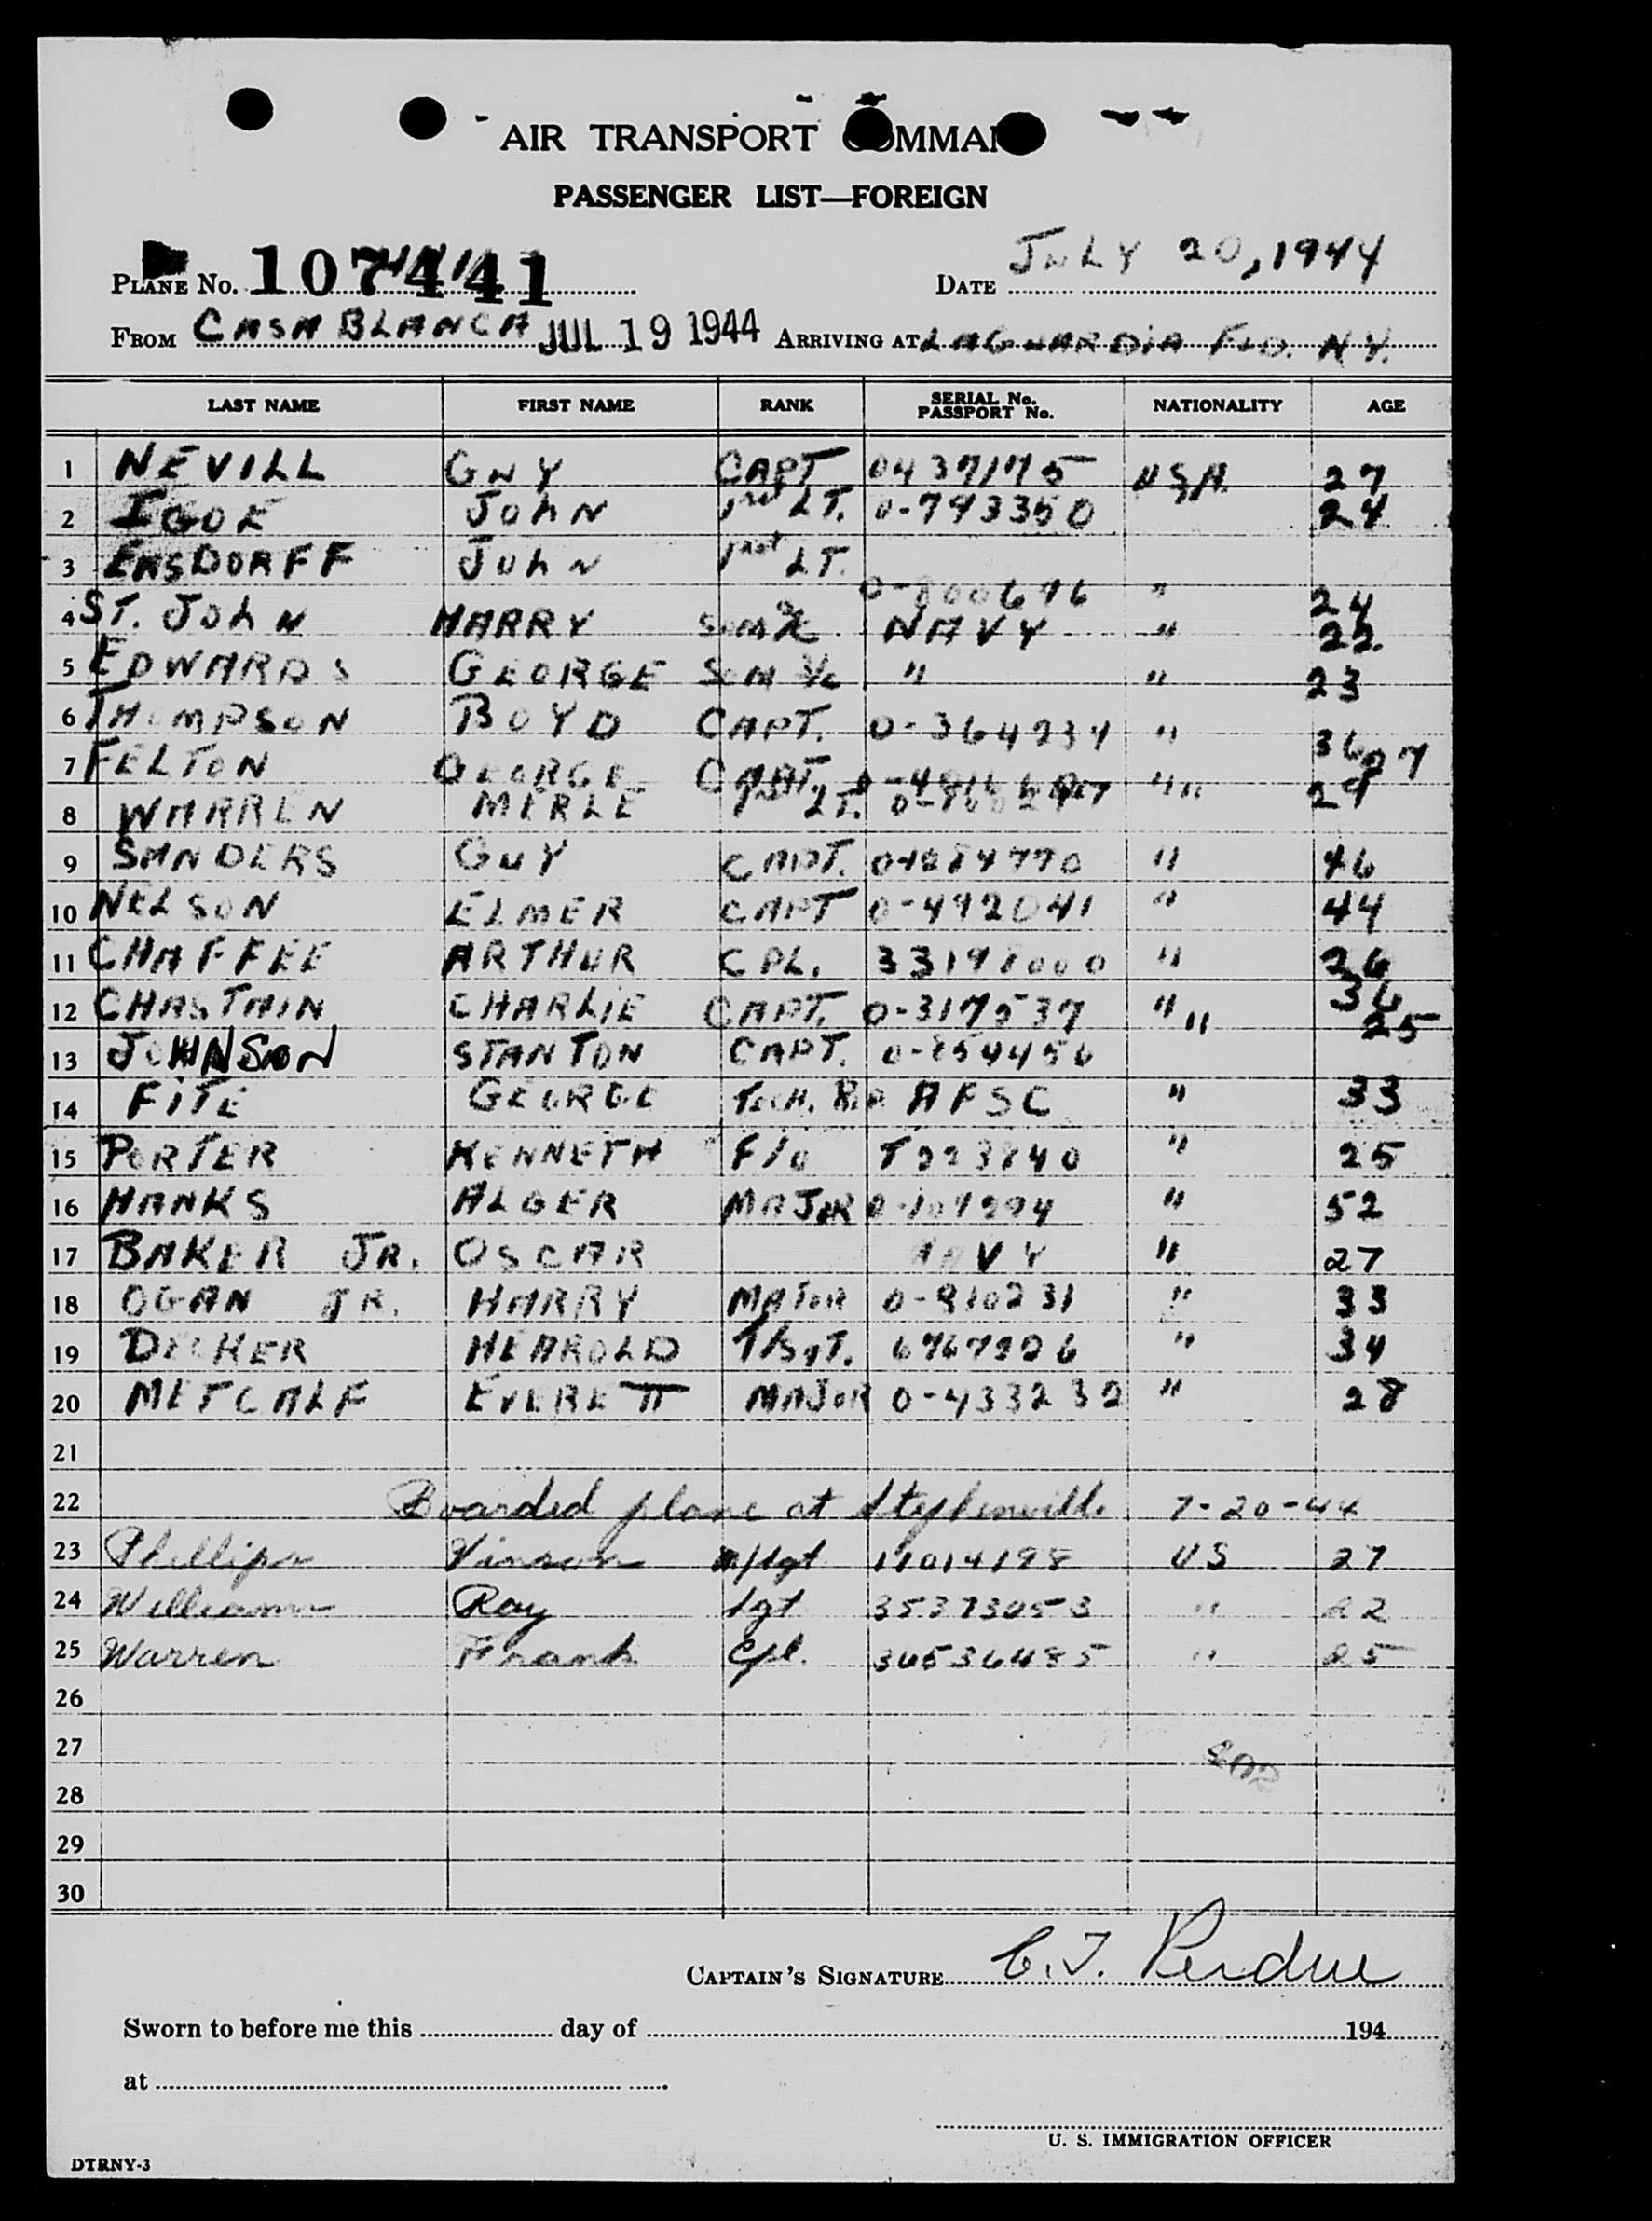 AIR TRANSPORT COMMAND
PASSENGER LIST—FOREIGN
PLANE No. 107441 DATE JULY 20, 1944
FROM CASABLANCA JUL 19 1944 ARRIVING AT LAGUARDIA FLD. N.Y.
LAST NAME FIRST NAME RANK SERIAL No. PASSPORT No. NATIONALITY AGE
1 NEVILL GUY CAPT 0437175 USA 27
2 IGOE JOHN 1st LT. 0-793350 24
3 JOHN 1st LT. " 24
4 ST. JOHN HARRY NAVY " 22
5 EDWARDS GEORGE " " 23
6 THOMPSON BOYD CAPT. 0-364234 " 36
7 FELTON GEORGE CAPT. " 27
8 WARREN MERLE 1st LT. " 29
9 SANDERS GUY CAPT. " 46
10 NELSON ELMER CAPT 0-492041 " 44
11 CHAFFEE ARTHUR CPL. 33198000 " 26
12 CHASTAIN CHARLIE CAPT. 0-317537 " 36
13 JOHNSON STANTON CAPT. 0-854456 " 25
14 FITE GEORGE TECH. REP AFSC " 33
15 PORTER KENNETH F/O T223840 " 25
16 HANKS ALGER MAJOR " 52
17 BAKER JR. OSCAR NAVY " 27
18 OGAN JR. HARRY MAJOR 0-910231 " 33
19 DECKER HEAROLD T/SGT. " 34
20 METCALF EVERETT MAJOR 0-433232 " 28
21
22 Boarded plane at Stephenville 7-20-44
23 Phillips Vinson M/Sgt 14014198 US 27
24 Williams Ray Sgt 35373053 " 22
25 Warren Frank Cpl. 34536485 " 25
26
27
28
29
30
CAPTAIN'S SIGNATURE C. T. Perdue
Sworn to before me this day of 194
at
U. S. IMMIGRATION OFFICER
DTRNY-3